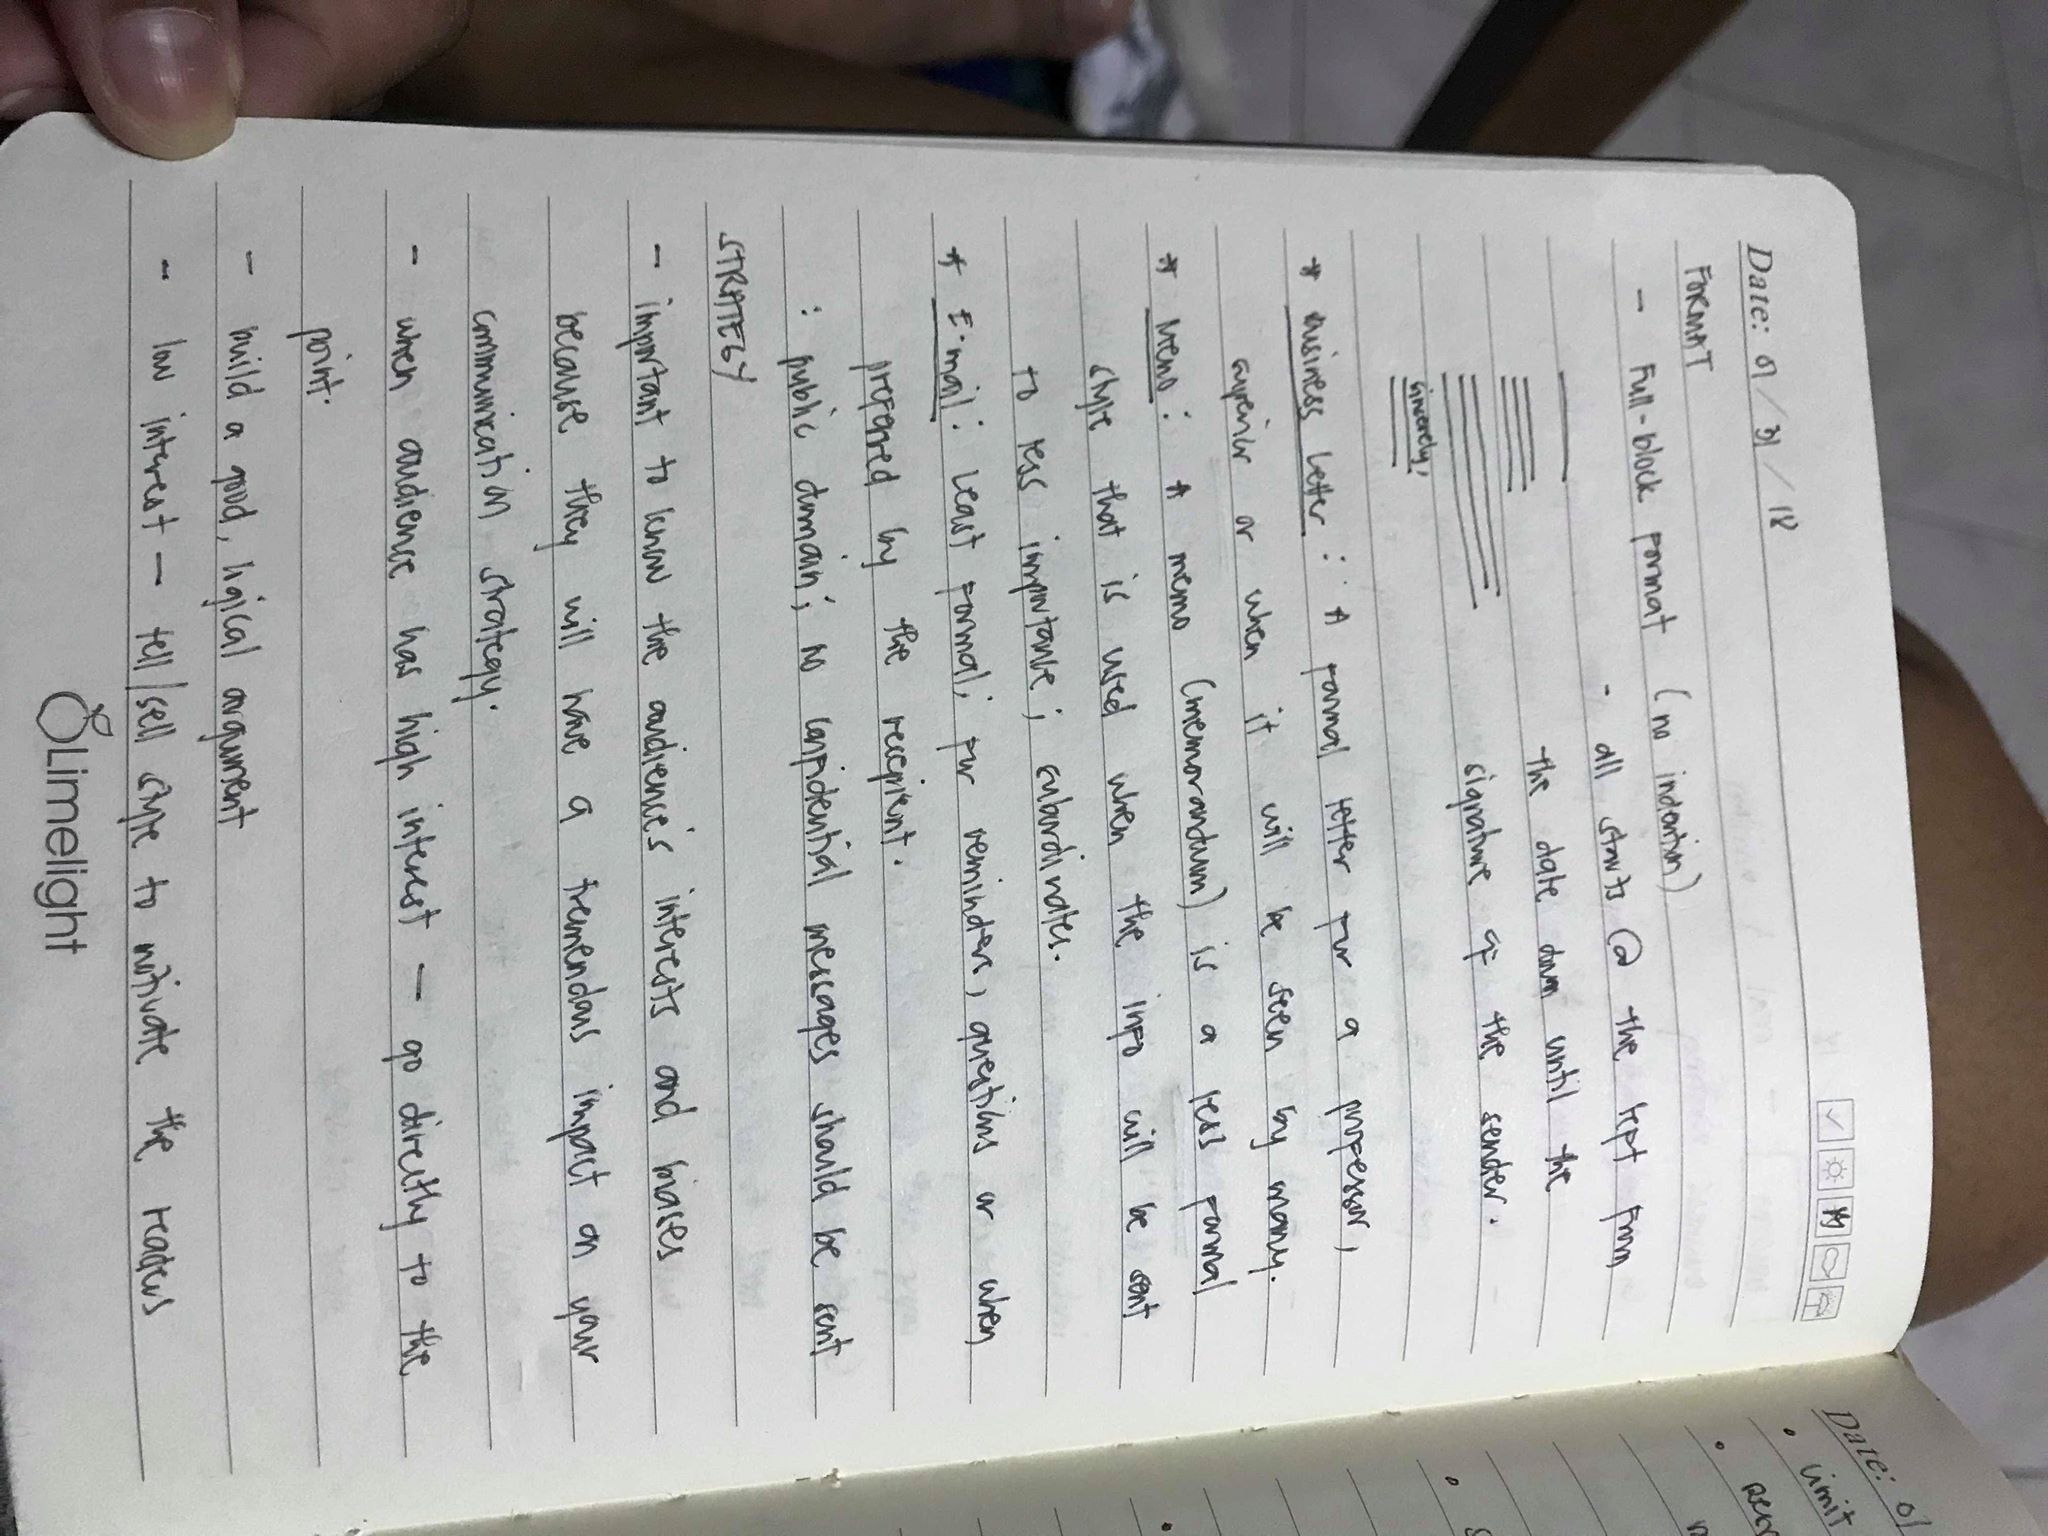 Date: 01/31/18
FORMAT
- Full-block format (no indention)
- all starts @ the left from
the date down until the
signature of the sender.
sincerely,
* Business Letter : A formal letter for a professor,
superior or when it will be seen by many.
* Memo : A memo (memorandum) is a less formal
style that is used when the info will be sent
to less importance ; subordinates.
* E-mail : Least formal; for reminders, questions or when
preferred by the recipient.
: public domain; no confidential messages should be sent
STRATEGY
- important to know the audience's interests and biases
because they will have a tremendous impact on your
communication strategy.
- when audience has high interest — go directly to the
point.
- build a good, logical argument
- low interest — tell/sell style to motivate the readers
Limelight
Date: 01
• limit